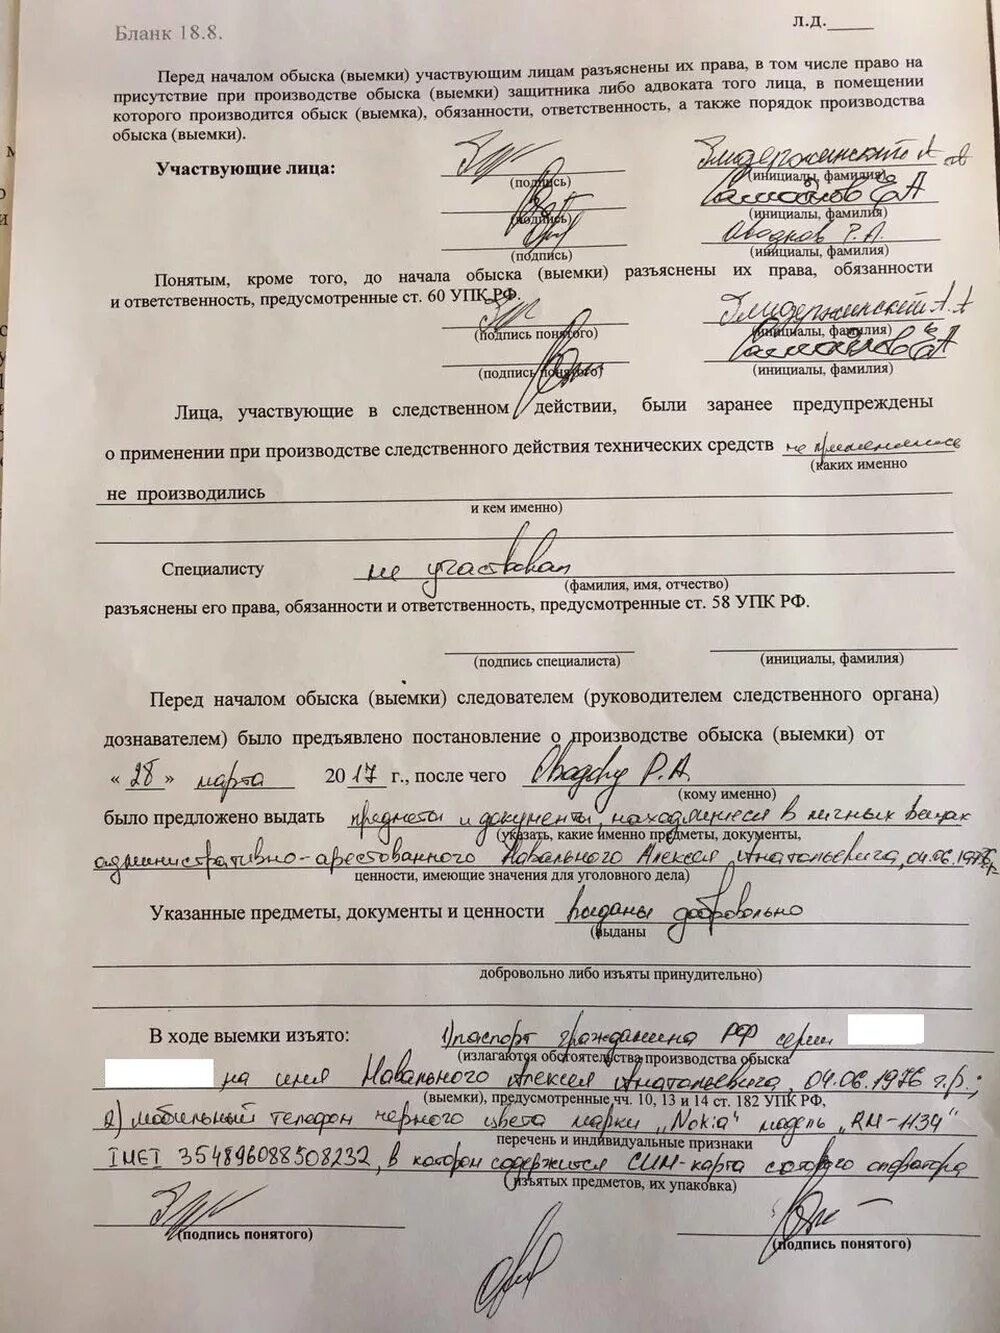 Бланк 18.8.
л.д.
Перед началом обыска (выемки) участвующим лицам разъяснены их права, в том числе право на
присутствие при производстве обыска (выемки) защитника либо адвоката того лица, в помещении
которого производится обыск (выемка), обязанности, ответственность, а также порядок производства
обыска (выемки).
Участвующие лица:
(подпись) (инициалы, фамилия)
(подпись) (инициалы, фамилия)
Р.А.
(подпись) (инициалы, фамилия)
Понятым, кроме того, до начала обыска (выемки) разъяснены их права, обязанности
и ответственность, предусмотренные ст. 60 УПК РФ.
(подпись понятого) (инициалы, фамилия)
(подпись понятого) (инициалы, фамилия)
Лица, участвующие в следственном действии, были заранее предупреждены
о применении при производстве следственного действия технических средств не применялись
(каких именно
не производились
и кем именно)
Специалисту не участвовал
(фамилия, имя, отчество)
разъяснены его права, обязанности и ответственность, предусмотренные ст. 58 УПК РФ.
(подпись специалиста) (инициалы, фамилия)
Перед началом обыска (выемки) следователем (руководителем следственного органа)
дознавателем) было предъявлено постановление о производстве обыска (выемки) от
« 28 » марта 2017 г., после чего Р.А
(кому именно)
было предложено выдать предметы и документы, находящиеся в личных вещах
(указать, какие именно предметы, документы,
административно-арестованного Навального Алексея Анатольевича, 04.06.1976 г.р.
ценности, имеющие значения для уголовного дела)
Указанные предметы, документы и ценности выданы добровольно
(выданы
добровольно либо изъяты принудительно)
В ходе выемки изъято: 1) паспорт гражданина РФ серии
(излагаются обстоятельства производства обыска
на имя Навального Алексея Анатольевича, 04.06.1976 г.р;
(выемки), предусмотренные чч. 10, 13 и 14 ст. 182 УПК РФ,
2) мобильный телефон черного цвета марки „Nokia“ модель „RM-1134“
перечень и индивидуальные признаки
IMEI 354896088508232, в котором содержится СИМ-карта сотового оператора
(изъятых предметов, их упаковка)
(подпись понятого) (подпись понятого)